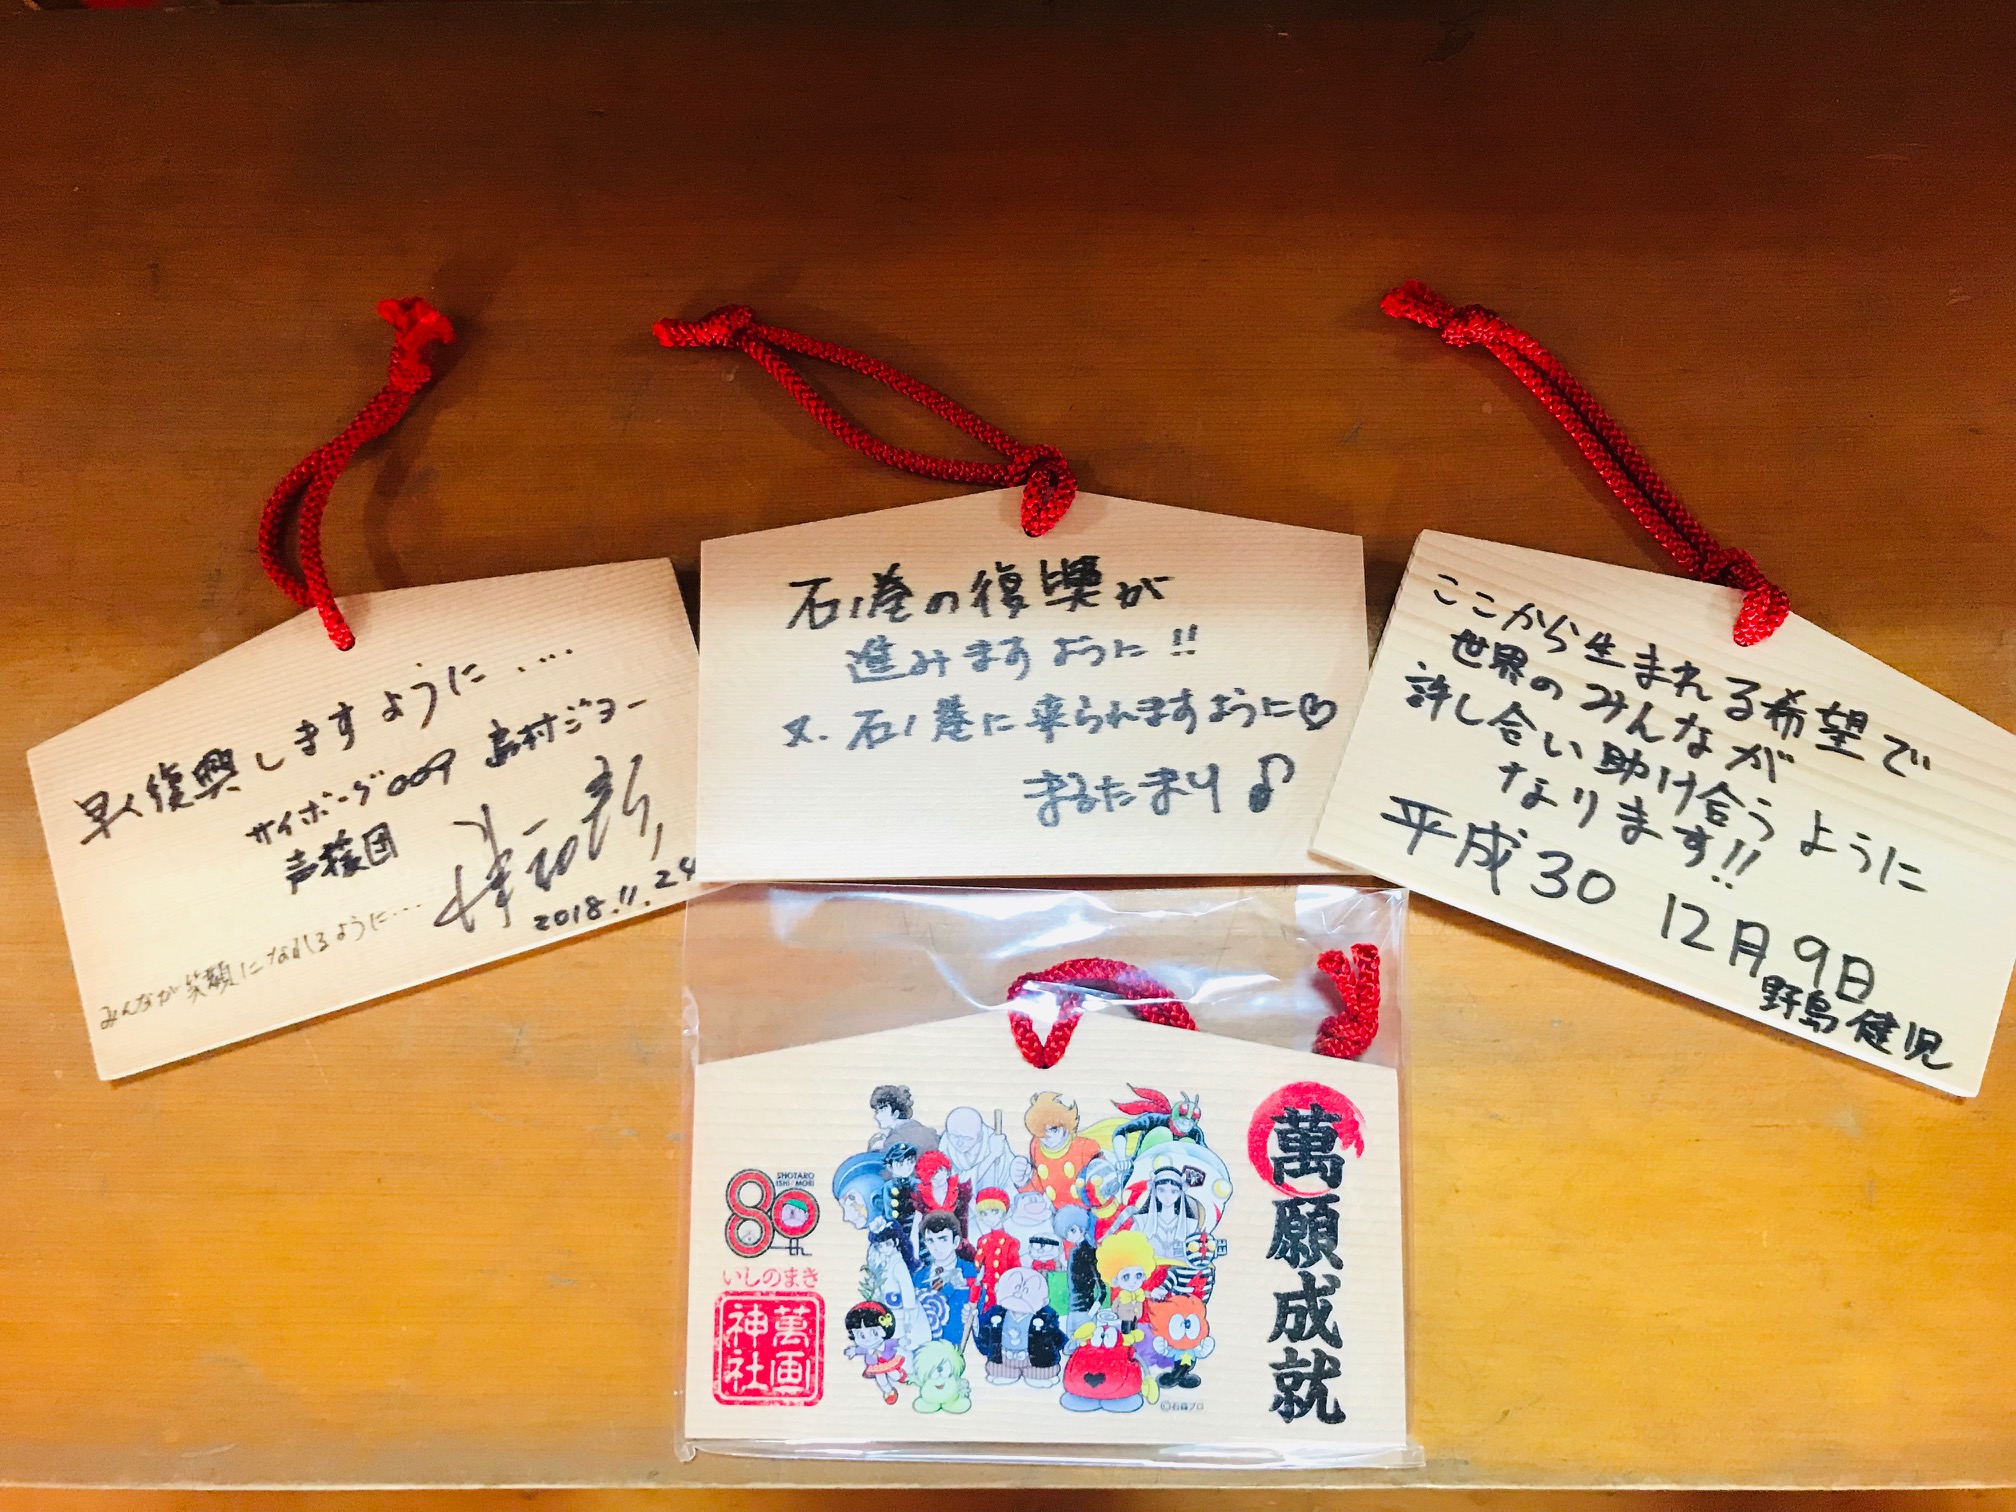 早く復興しますように....
サイボーグ009 島村ジョー
声援団
2018.11.24
みんなが笑顔になれるように...
石ノ巻の復興が
進みますように!!
又、石ノ巻に来られますように♡
まるたまり♪
ここから生まれる希望で
世界のみんなが
許し合い助け合うように
なります!!
平成30 12月9日
野島健児
SHOTARO
ISHI MORI
80th
いしのまき
萬画
神社
萬願成就
©石森プロ